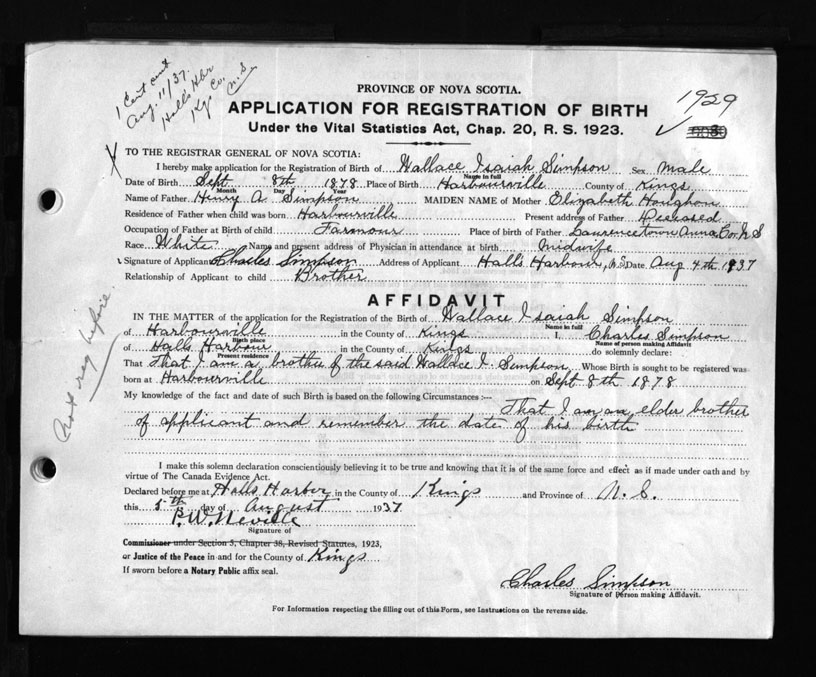 1 Cert sent
Aug. 11/37.
Halls Hbr
Kgs Co.
N. S
PROVINCE OF NOVA SCOTIA.
APPLICATION FOR REGISTRATION OF BIRTH
Under the Vital Statistics Act, Chap. 20, R. S. 1923.
1929
TO THE REGISTRAR GENERAL OF NOVA SCOTIA:
I hereby make application for the Registration of Birth of Wallace Isaiah Simpson Sex Male
Name in full
Date of Birth Sept 8th 1878 Place of Birth Harbourville County of Kings
Month Day Year
Name of Father Henry A. Simpson MAIDEN NAME of Mother Elizabeth
Residence of Father when child was born Harbourville Present address of Father Deceased
Occupation of Father at Birth of child Farmour Place of birth of Father Laurencetown Anna. Co. N S
Race White Name and present address of Physician in attendance at birth Midwife
Signature of Applicant Charles Simpson Address of Applicant Halls Harbour, N.S. Date Aug 4th 1937
Relationship of Applicant to child Brother
AFFIDAVIT
IN THE MATTER of the application for the Registration of the Birth of Wallace Isaiah Simpson
Name in full
of Harbourville in the County of Kings I, Charles Simpson
Birth place Name of person making Affidavit
of Halls Harbour in the County of Kings do solemnly declare:
Present residence
That That I am a brother of the said Wallace I. Simpson Whose Birth is sought to be registered was
born at Harbourville on Sept 8th 1878
My knowledge of the fact and date of such Birth is based on the following Circumstances :—
That I am an elder brother
of applicant and remember the date of his birth
Not reg before.
I make this solemn declaration conscientiously believing it to be true and knowing that it is of the same force and effect as if made under oath and by
virtue of The Canada Evidence Act.
Declared before me at Halls Harbor in the County of Kings and Province of N. S.
this 5th day of August 1937
P. W. Neville
Signature of
Commissioner under Section 3, Chapter 38, Revised Statutes, 1923,
or Justice of the Peace in and for the County of Kings
If sworn before a Notary Public affix seal.
Charles Simpson
Signature of person making Affidavit.
For Information respecting the filling out of this Form, see Instructions on the reverse side.